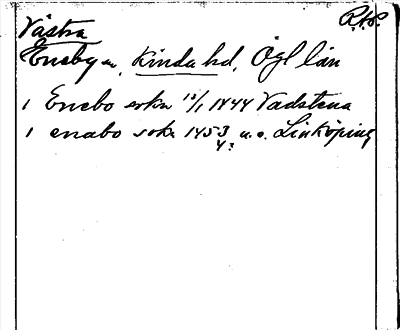 R.A.P.
Västra
Eneby sn, Kinda hd, Ögl län
1 Enebo sokn 13/1 1444 Vadstena
1 enabo sokn 1453 u.o. Linköping